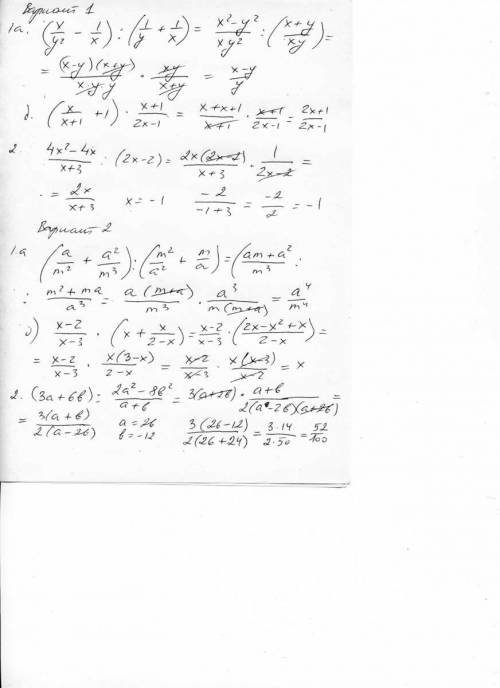 Вариант 1
1а. (x/y² − 1/x) : (1/y + 1/x) = (x²−y²)/(xy²) : ((x+y)/(xy)) =
= ((x−y)(x+y))/(x·y·y) · (xy)/(x+y) = (x−y)/y
б. (x/(x+1) + 1) · (x+1)/(2x−1) = (x+x+1)/(x+1) · (x+1)/(2x−1) = (2x+1)/(2x−1)
2. (4x²−4x)/(x+3) : (2x−2) = (2x(2x−2))/(x+3) · 1/(2x−2) =
= 2x/(x+3) x = −1 −2/(−1+3) = −2/2 = −1
Вариант 2
1.а (a/m² + a²/m³) : (m²/a² + m/a) = (am+a²)/m³ :
: (m²+ma)/a³ = (a(m+a))/m³ · a³/(m(m+a)) = a⁴/m⁴
б) (x−2)/(x−3) · (x + x/(2−x)) = (x−2)/(x−3) · ((2x−x²+x)/(2−x)) =
= (x−2)/(x−3) · (x(3−x))/(2−x) = (x−2)/(x−3) · (x(x−3))/(x−2) = x
2. (3a+6b) : (2a²−8b²)/(a+b) = 3(a+2b) · (a+b)/(2(a−2b)(a+2b)) =
= (3(a+b))/(2(a−2b)) a = 26 b = −12 (3(26−12))/(2(26+24)) = (3·14)/(2·50) = 52/100